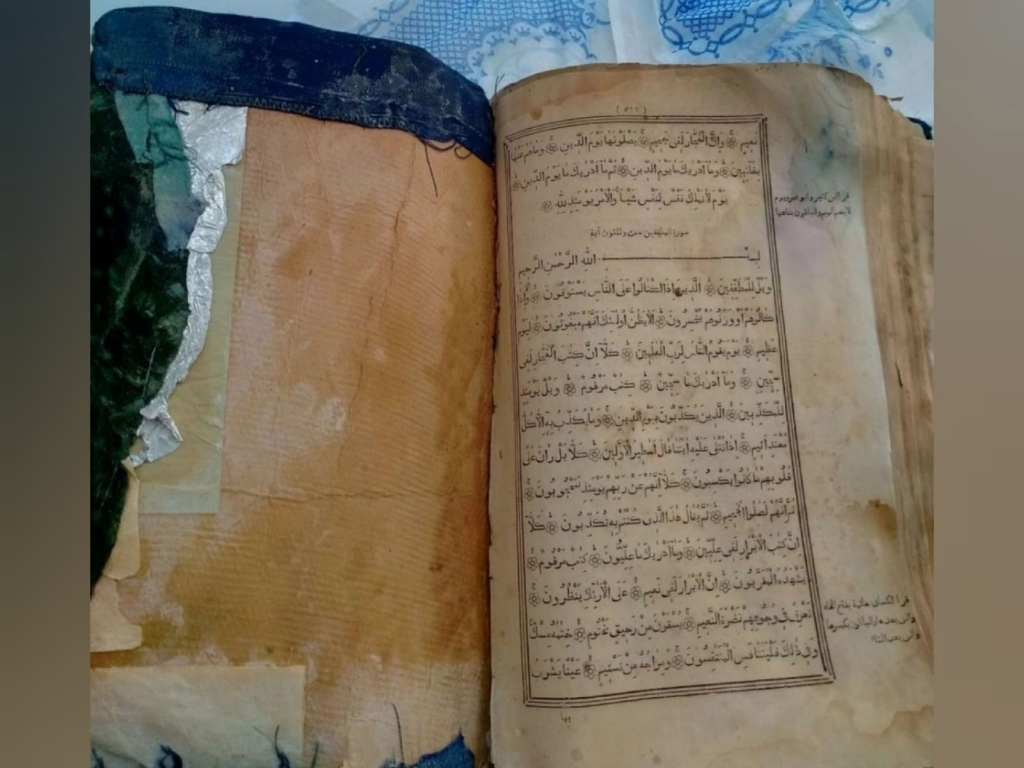 نَعِيمٍ وَاِنَّ الْفُجَّارَ لَفِى جَحِيمٍ يَصْلَوْنَهَا يَوْمَ الدِّينِ وَمَا هُمْ عَنْهَا
بِغَائِبِينَ وَمَا اَدْرٰيكَ مَا يَوْمُ الدِّينِ ثُمَّ مَا اَدْرٰيكَ مَا يَوْمُ الدِّينِ
يَوْمَ لَا تَمْلِكُ نَفْسٌ لِنَفْسٍ شَيْئًا وَالْاَمْرُ يَوْمَئِذٍ لِلّٰهِ
سورة المطففين ست وثلثون آية
بِسْمِ اللّٰهِ الرَّحْمٰنِ الرَّحِيمِ
وَيْلٌ لِلْمُطَفِّفِينَ الَّذِينَ اِذَا اكْتَالُوا عَلَى النَّاسِ يَسْتَوْفُونَ وَاِذَا
كَالُوهُمْ اَوْ وَزَنُوهُمْ يُخْسِرُونَ اَلَا يَظُنُّ اُولٰئِكَ اَنَّهُمْ مَبْعُوثُونَ لِيَوْمٍ
عَظِيمٍ يَوْمَ يَقُومُ النَّاسُ لِرَبِّ الْعٰلَمِينَ كَلَّا اِنَّ كِتٰبَ الْفُجَّارِ لَفِى
سِجِّينٍ وَمَا اَدْرٰيكَ مَا سِجِّينٌ كِتٰبٌ مَرْقُومٌ وَيْلٌ يَوْمَئِذٍ
لِلْمُكَذِّبِينَ الَّذِينَ يُكَذِّبُونَ بِيَوْمِ الدِّينِ وَمَا يُكَذِّبُ بِهِ اِلَّا كُلُّ
مُعْتَدٍ اَثِيمٍ اِذَا تُتْلٰى عَلَيْهِ اٰيٰتُنَا قَالَ اَسٰطِيرُ الْاَوَّلِينَ كَلَّا بَلْ رَانَ عَلٰى
قُلُوبِهِمْ مَا كَانُوا يَكْسِبُونَ كَلَّا اِنَّهُمْ عَنْ رَبِّهِمْ يَوْمَئِذٍ لَمَحْجُوبُونَ
ثُمَّ اِنَّهُمْ لَصَالُوا الْجَحِيمِ ثُمَّ يُقَالُ هٰذَا الَّذِى كُنْتُمْ بِهِ تُكَذِّبُونَ كَلَّا
اِنَّ كِتٰبَ الْاَبْرَارِ لَفِى عِلِّيِّينَ وَمَا اَدْرٰيكَ مَا عِلِّيُّونَ كِتٰبٌ مَرْقُومٌ
يَشْهَدُهُ الْمُقَرَّبُونَ اِنَّ الْاَبْرَارَ لَفِى نَعِيمٍ عَلَى الْاَرَائِكِ يَنْظُرُونَ
تَعْرِفُ فِى وُجُوهِهِمْ نَضْرَةَ النَّعِيمِ يُسْقَوْنَ مِنْ رَحِيقٍ مَخْتُومٍ خِتٰمُهُ مِسْكٌ
وَفِى ذٰلِكَ فَلْيَتَنَافَسِ الْمُتَنَافِسُونَ وَمِزَاجُهُ مِنْ تَسْنِيمٍ عَيْنًا يَشْرَبُ
بها
قرأ ابن كثير وابو عمرو يوم
قرأ الكسائى خاتمه بفتح الخاء